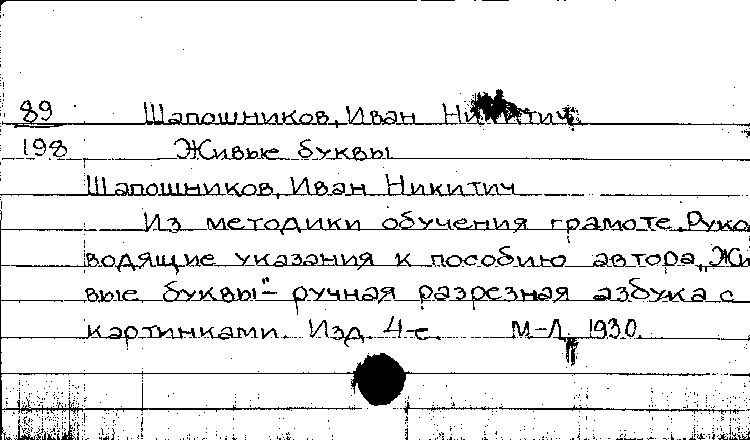 89 Шапошников, Иван Никитич.
198 Живые буквы
Шапошников, Иван Никитич
Из методики обучения грамоте. Руко
водящие указания к пособию автора „Жи
вые буквы" – ручная разрезная азбука с
картинками. Изд. 4-е. М-Л. 1930.